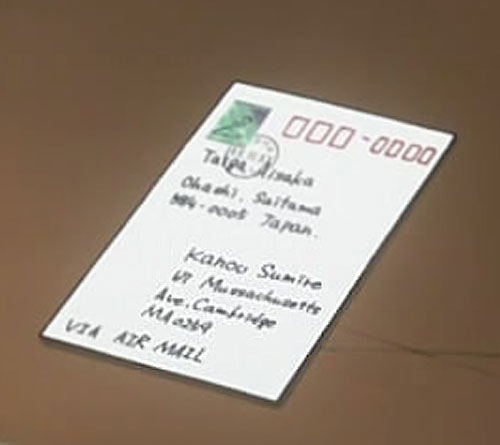 Taiga Aisaka
Ohashi, Saitama
-0005 Japan.
Kanou Sumire
Massachusetts
Ave. Cambridge
MA
VIA AIR MAIL